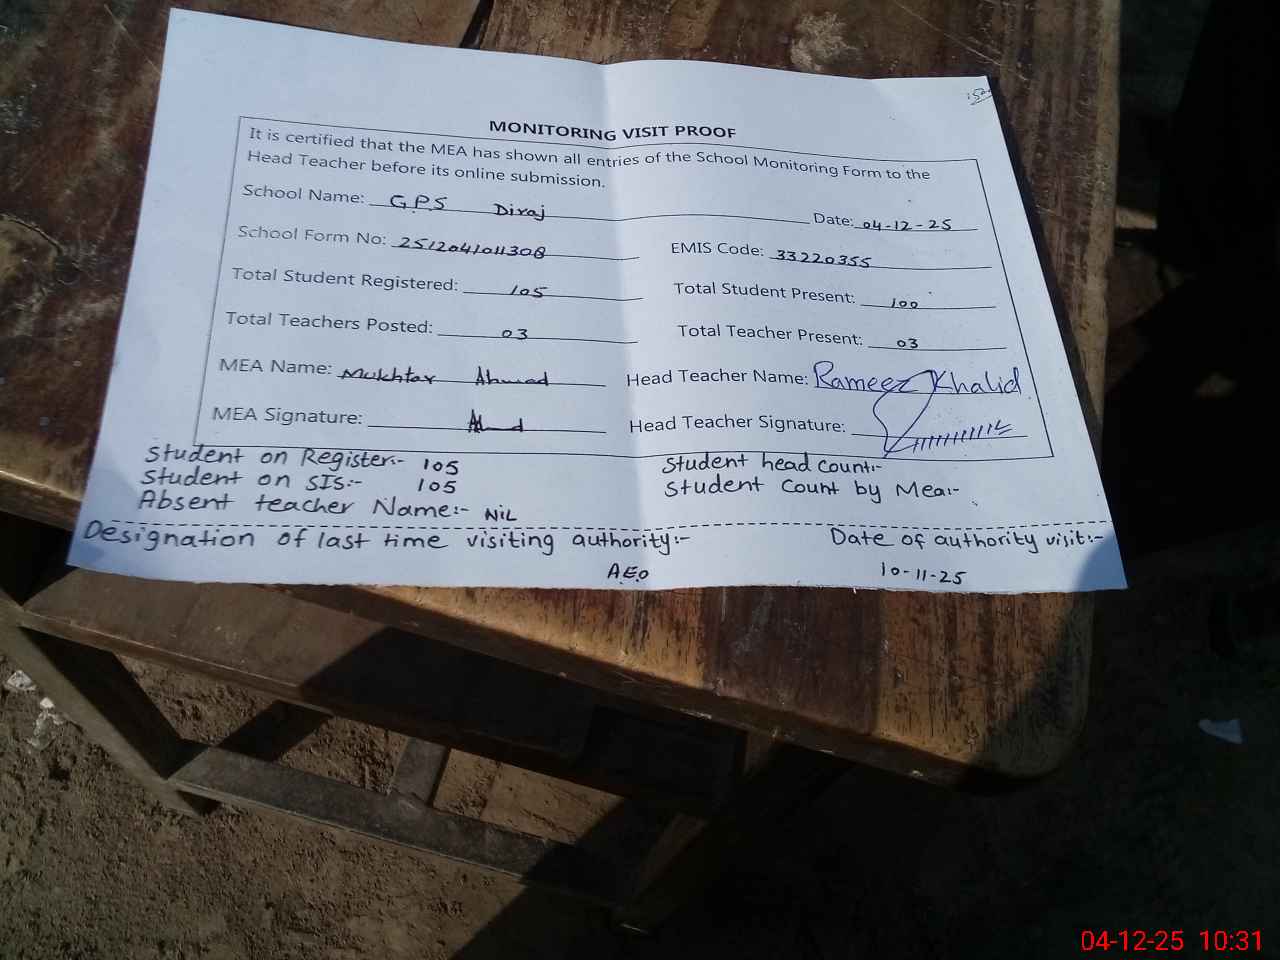 MONITORING VISIT PROOF
It is certified that the MEA has shown all entries of the School Monitoring Form to the
Head Teacher before its online submission.
School Name: G.P.S Diraj Date: 04-12-25
School Form No: 2512041011308 EMIS Code: 33220355
Total Student Registered: 105 Total Student Present: 100
Total Teachers Posted: 03 Total Teacher Present: 03
MEA Name: Mukhtar Ahmad Head Teacher Name: Rameez Khalid
MEA Signature: Head Teacher Signature:
Student on Register:- 105 Student head count:-
Student on SIS:- 105 Student Count by Mea:-
Absent teacher Name:- NiL
Designation of last time visiting authority:- Date of authority visit:-
A.E.O 10-11-25
04-12-25 10:31